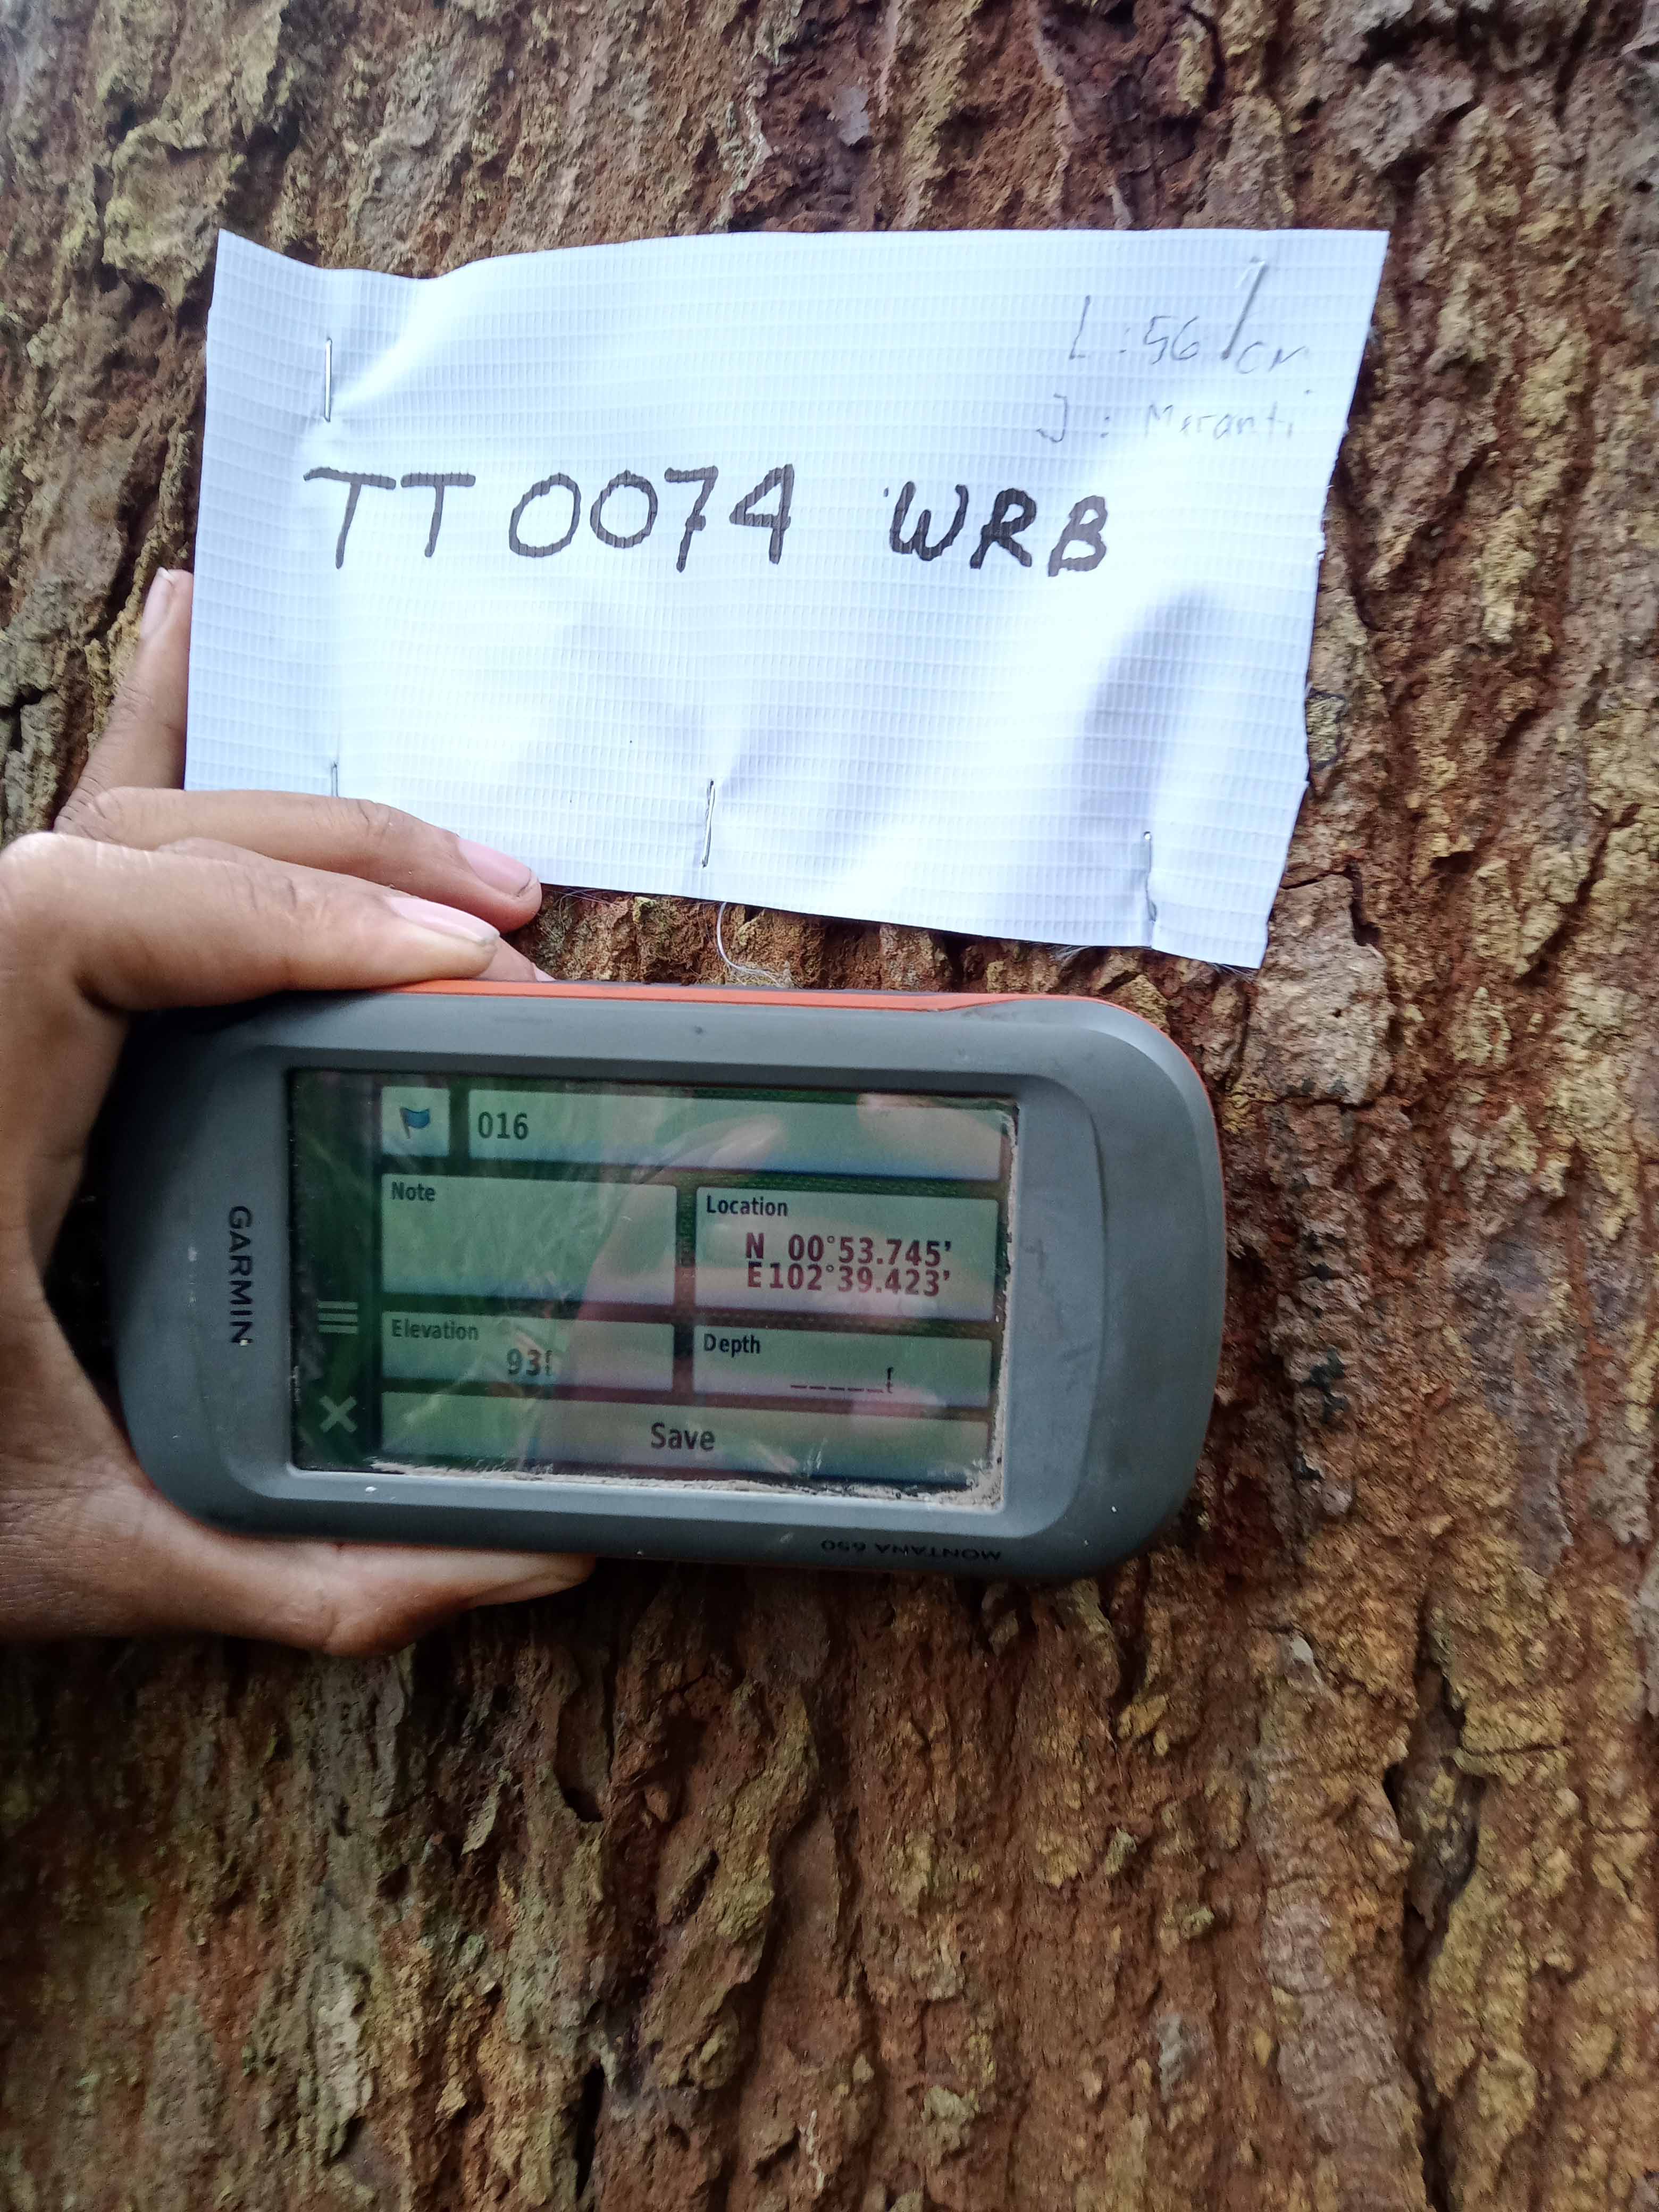 L : 56 cm
J : Meranti
TT 0074 WRB
016
Note
Location
N 00°53.745'
E102°39.423'
Elevation
93f
Depth
_____f
Save
GARMIN
MONTANA 650